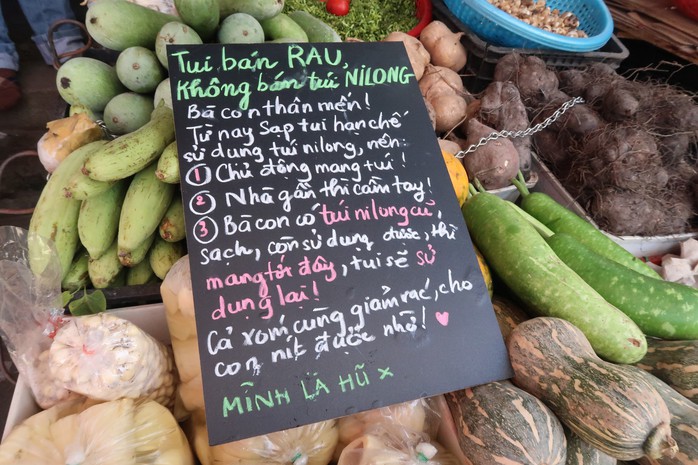 Tui bán RAU,
Không bán túi NILONG
Bà con thân mến!
Từ nay Sạp tui hạn chế
sử dụng túi nilong, nên:
1 Chủ động mang túi!
2 Nhà gần thì cầm tay!
3 Bà con có túi nilong cũ,
sạch, còn sử dụng được, thì
mang tới đây, tui sẽ sử
dụng lại!
Cả xóm cùng giảm rác, cho
con nít được nhờ!
MÌNH LÀ HŨ x